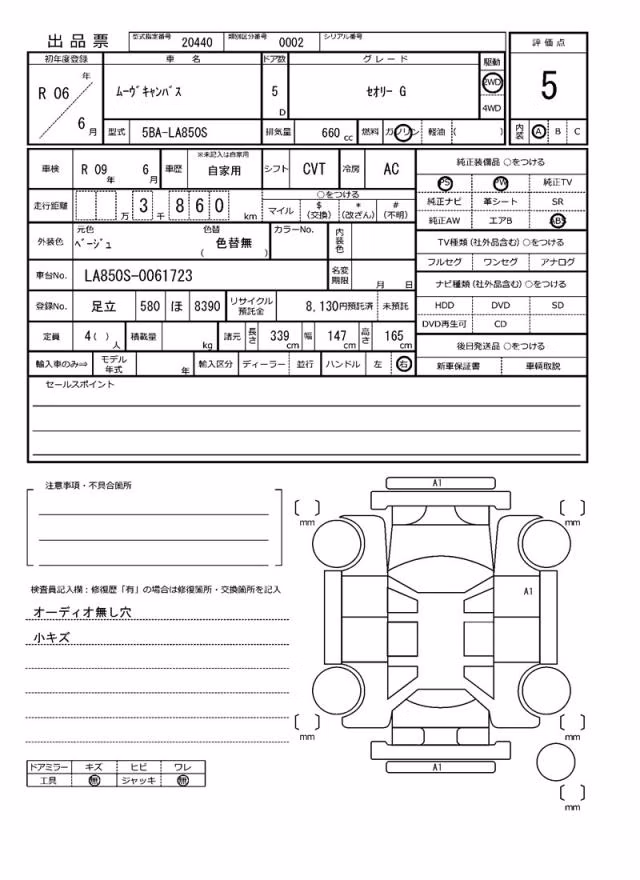 出品票 型式指定番号 20440 類別区分番号 0002 シリアル番号
評価点
5
内装 A B C
初年度登録 車名 ドア数 グレード 駆動
R 06 年 6 月 ムーヴキャンバス 5 D セオリー G 2WD 4WD
型式 5BA-LA850S 排気量 660 cc 燃料 ガソリン 軽油 ( )
車検 R 09 年 6 月 車歴 ※未記入は自家用 自家用 シフト CVT 冷房 AC
走行距離 万 3 千 8 6 0 km ○をつける
マイル $ (交換) * (改ざん) # (不明)
外装色 元色 ベージュ 色替 色替無 ( ) カラーNo. 内装色
車台No. LA850S-0061723 名変期限 月 日
登録No. 足立 580 ほ 8390 リサイクル預託金 8,130円預託済 未預託
定員 4( ) 人 積載量 kg 諸元 長さ 339 cm 幅 147 cm 高さ 165 cm
輸入車のみ⇒ モデル年式 年 輸入区分 ディーラー 並行 ハンドル 左 右
純正装備品 ○をつける
PS PW 純正TV
純正ナビ 革シート SR
純正AW エアB ABS
TV種類 (社外品含む) ○をつける
フルセグ ワンセグ アナログ
ナビ種類 (社外品含む) ○をつける
HDD DVD SD
DVD再生可 CD
後日発送品 ○をつける
新車保証書 車輌取説
セールスポイント
注意事項・不具合箇所
検査員記入欄：修復歴「有」の場合は修復箇所・交換箇所を記入
オーディオ無し穴
小キズ
ドアミラー キズ ヒビ ワレ
工具 無 ジャッキ 無
A1
mm mm
A1
mm mm
A1
mm